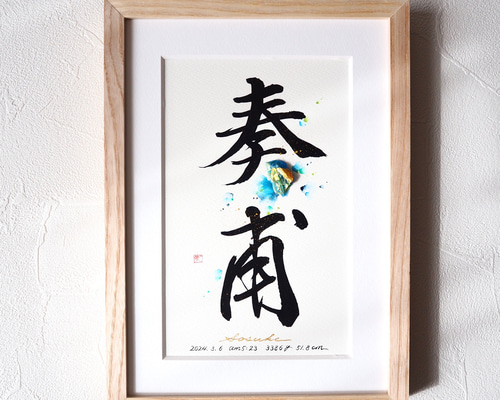 奏甫
Sosuke
2024.3.6 am5:23 3326g 51.8cm